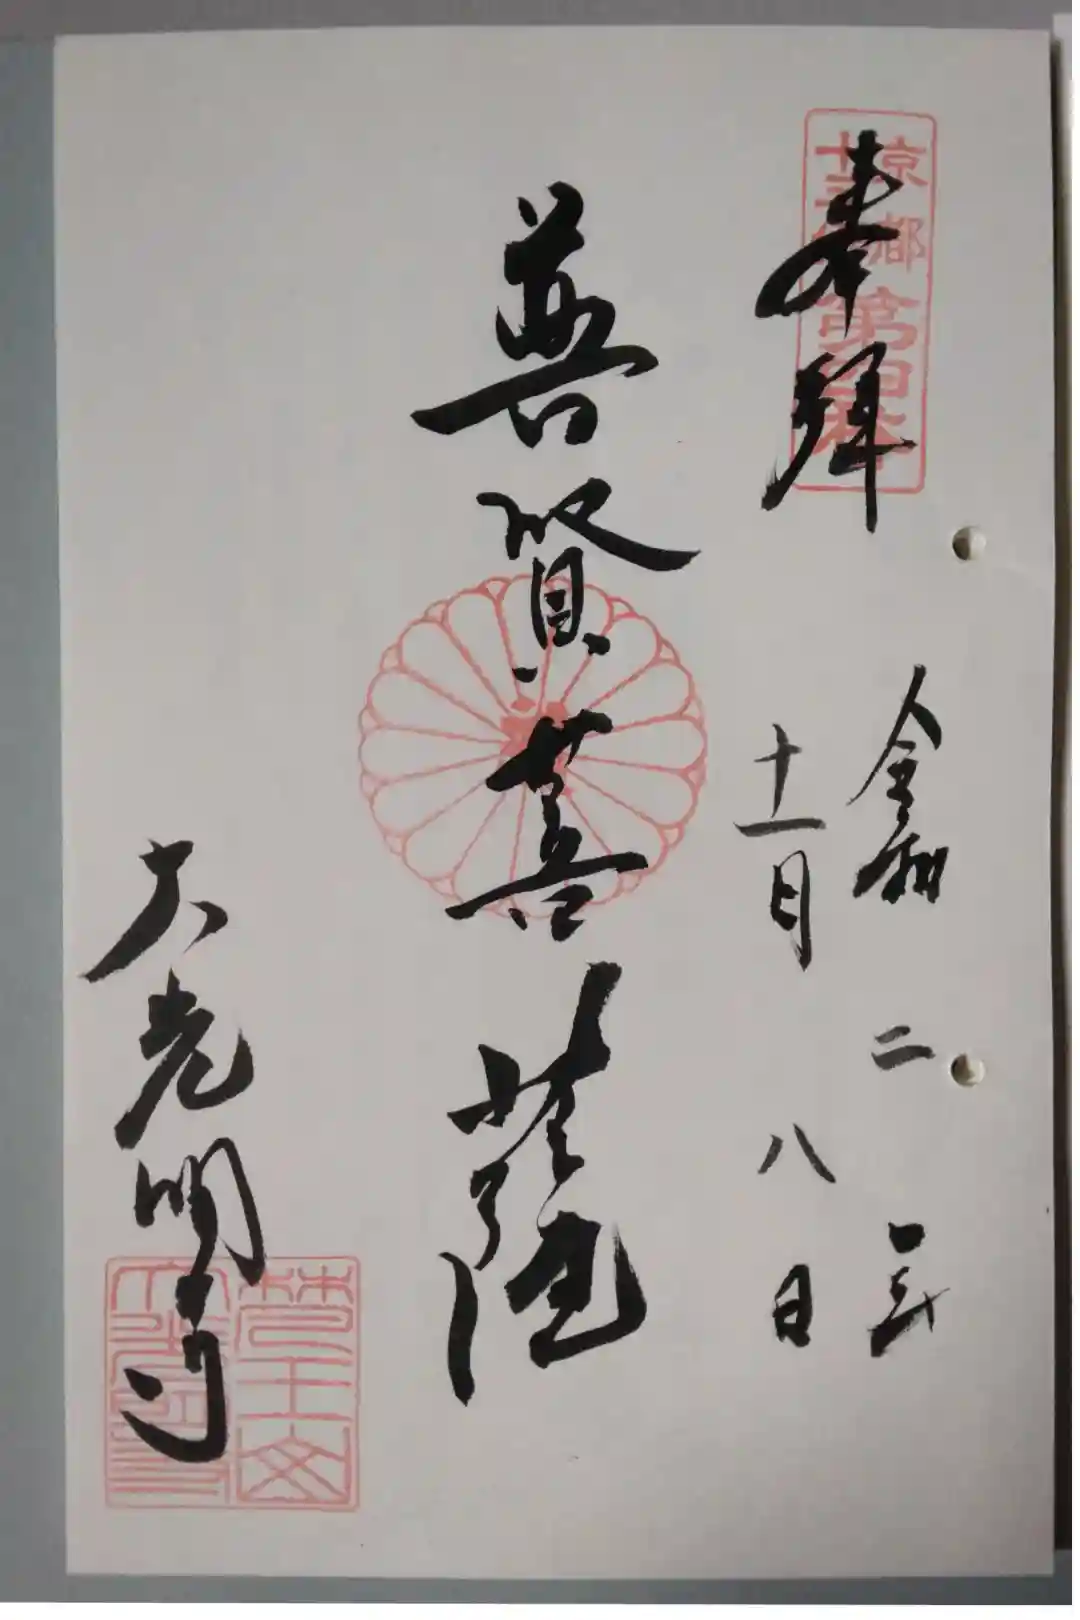 奉拝
京都
十三佛
第四番
令和二年
十一月八日
普賢菩薩
大光明寺